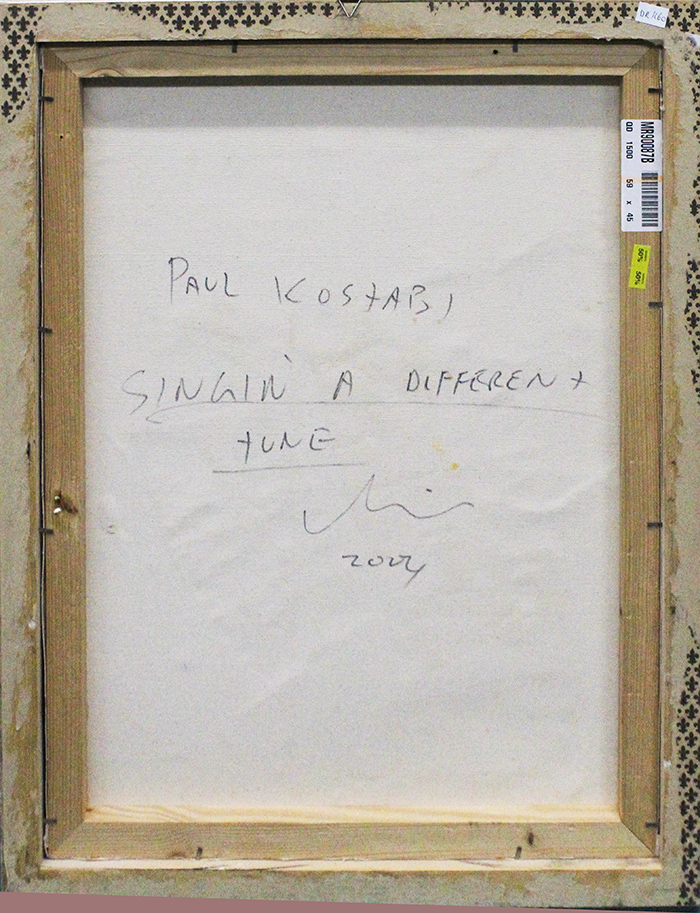 DR 1660
MR90087B
QD 1500 59 x 45
50%
50%
PAUL KOSTABI
SINGIN' A DIFFERENT
TUNE
2024